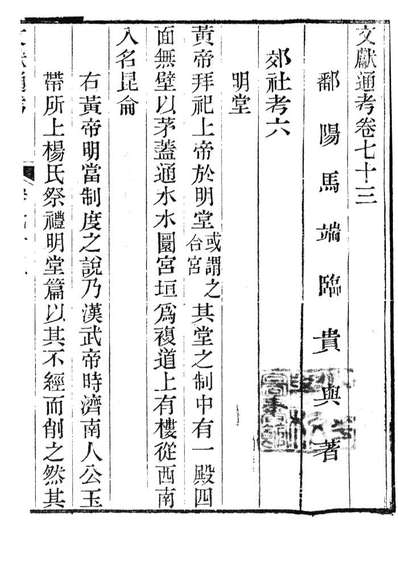 文獻通考卷七十三
鄱陽馬端臨貴與著
郊社考六
明堂
黃帝拜祀上帝於明堂或謂之合宮其堂之制中有一殿四
面無壁以茅蓋通水水圜宮垣爲複道上有樓從西南
入名昆侖
右黃帝明當制度之說乃漢武帝時濟南人公玉
帶所上楊氏祭禮明堂篇以其不經而削之然其